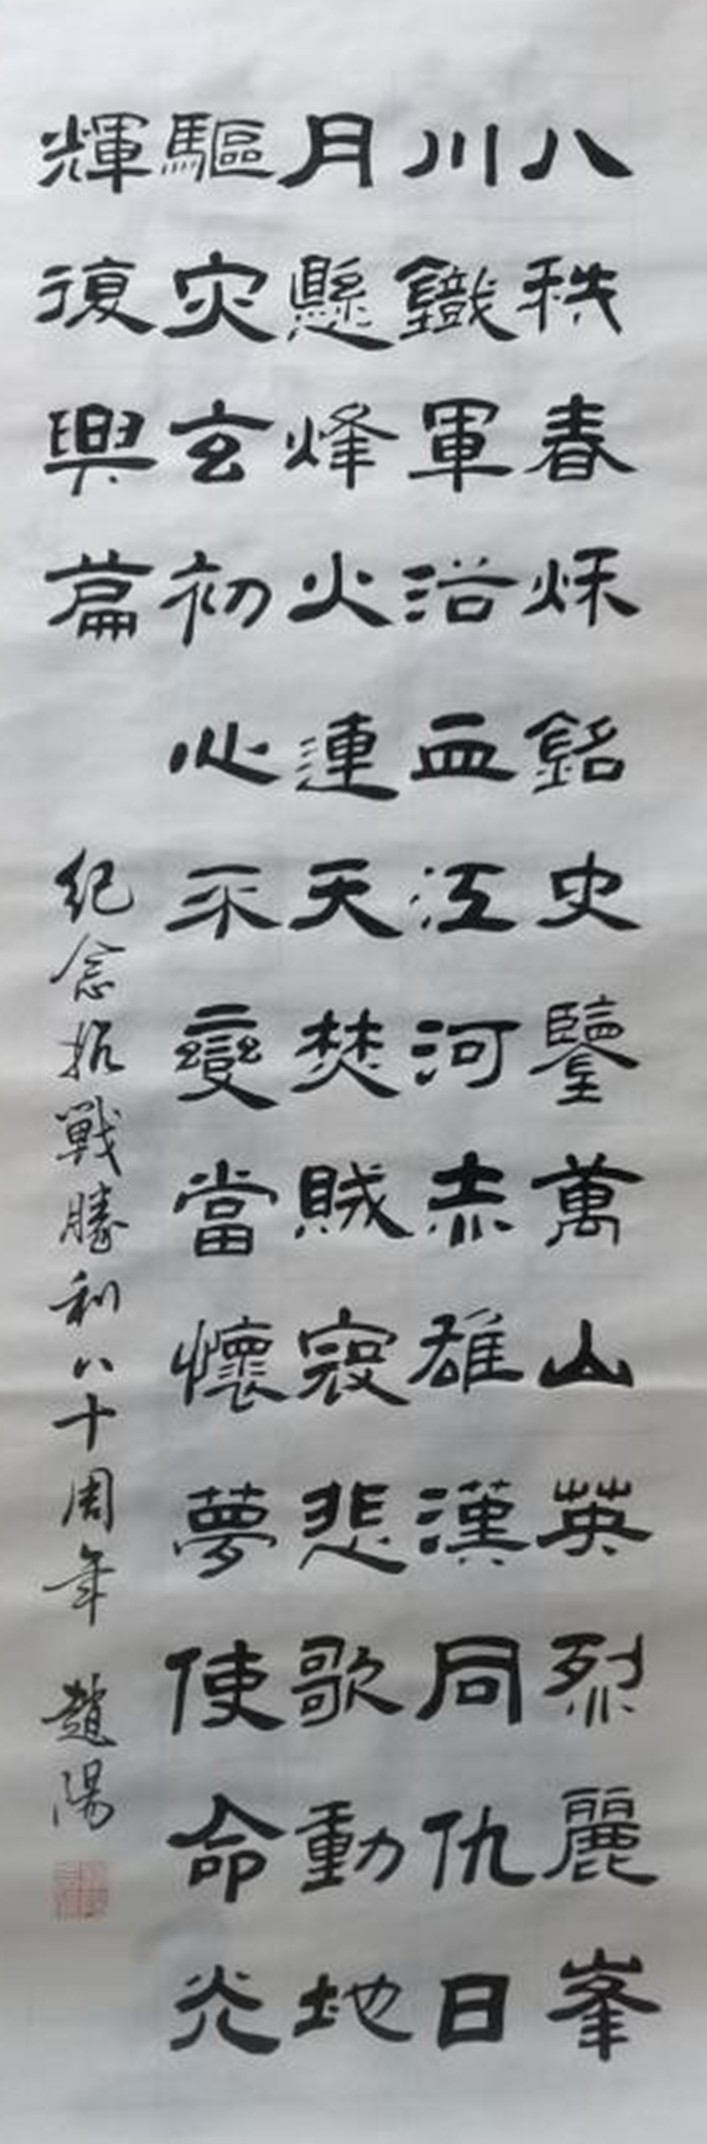 八秩春秋銘史鑒萬山英烈麗峯
川鐵軍沿血江河赤雄漢同仇日
月懸烽火連天焚賊寇悲歌動地
驅灾玄初心不變當懷夢使命光
輝復興篇
紀念抗戰勝利八十周年 趙陽